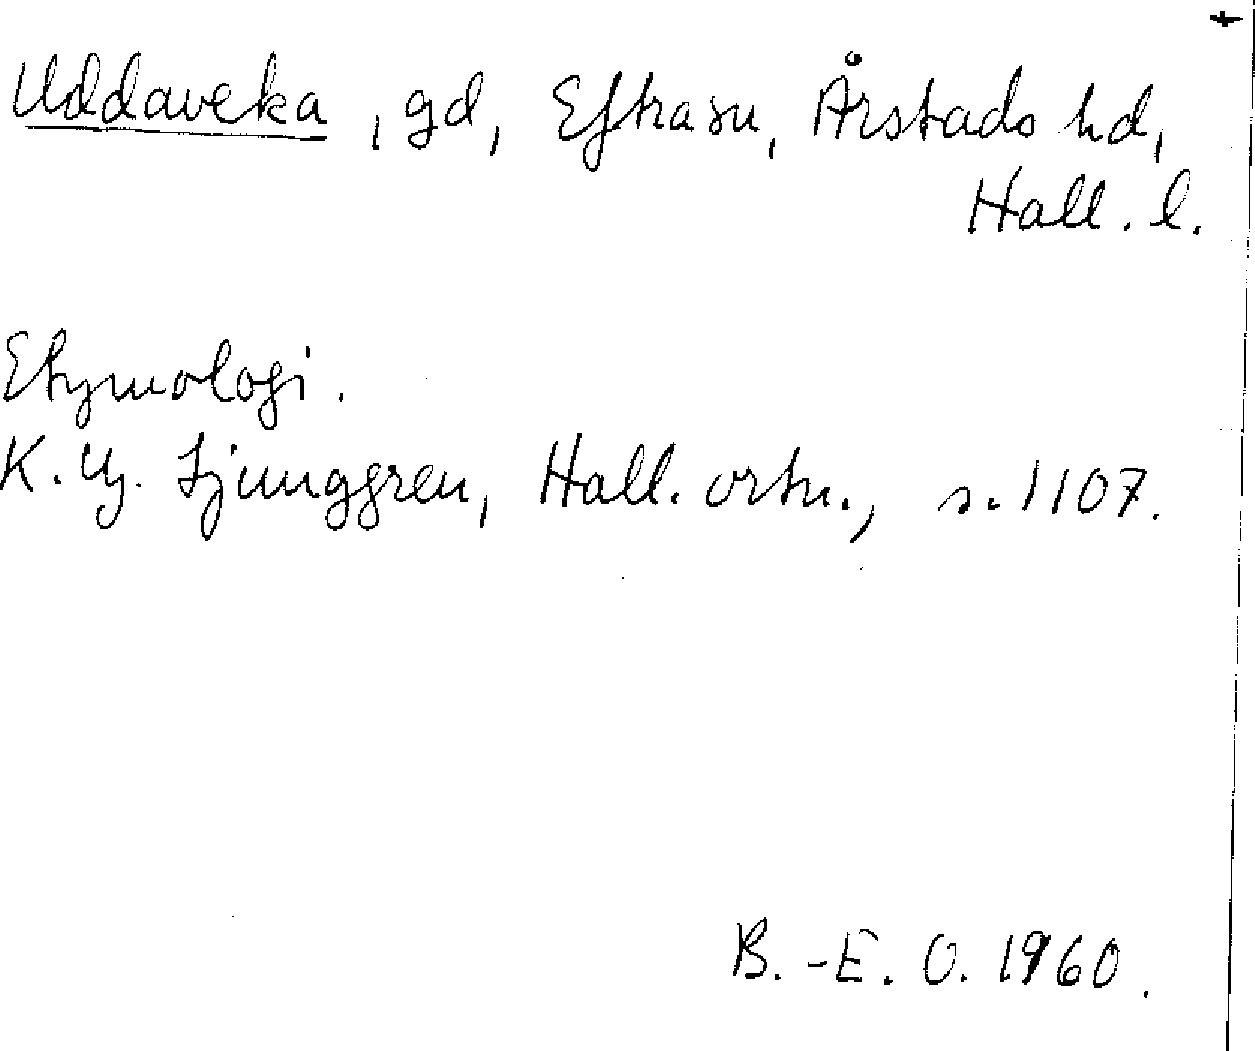 Uddaveka, gd, Eftra sn, Årstads hd,
Hall. l.
Etymologi.
K. G. Ljunggren, Hall. ortn., s. 1107.
B.-E. O. 1960.